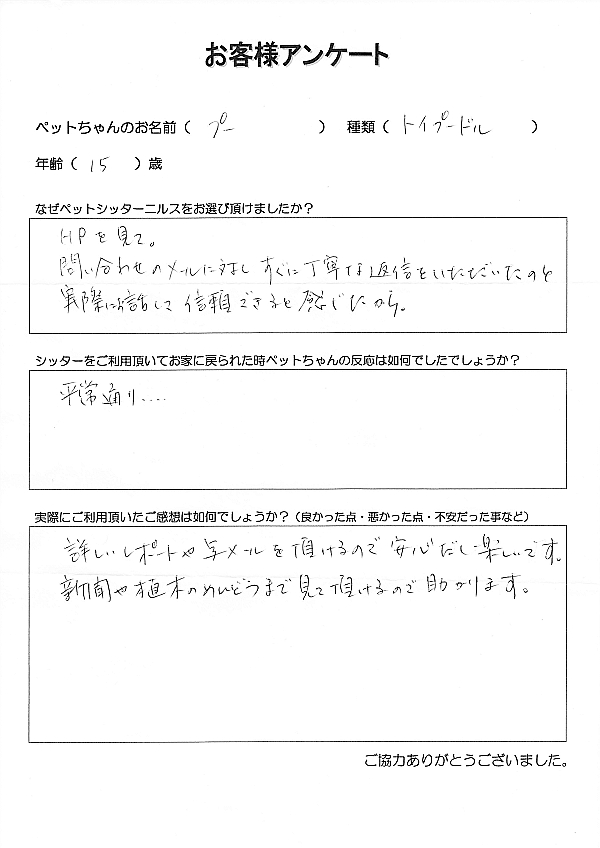 お客様アンケート
ペットちゃんのお名前（ プー ） 種類（ トイプードル ）
年齢（ 15 ）歳
なぜペットシッターニルスをお選び頂けましたか？
HPを見て。
問い合わせのメールに対しすぐに丁寧な返信をいただいたのと
実際にお話して信頼できると感じたから。
シッターをご利用頂いてお家に戻られた時ペットちゃんの反応は如何でしたでしょうか？
平常通り....
実際にご利用頂いたご感想は如何でしょうか？（良かった点・悪かった点・不安だった事など）
詳しいレポートや写メールを頂けるので安心だし楽しいです。
新聞や植木のめんどうまで見て頂けるので助かります。
ご協力ありがとうございました。